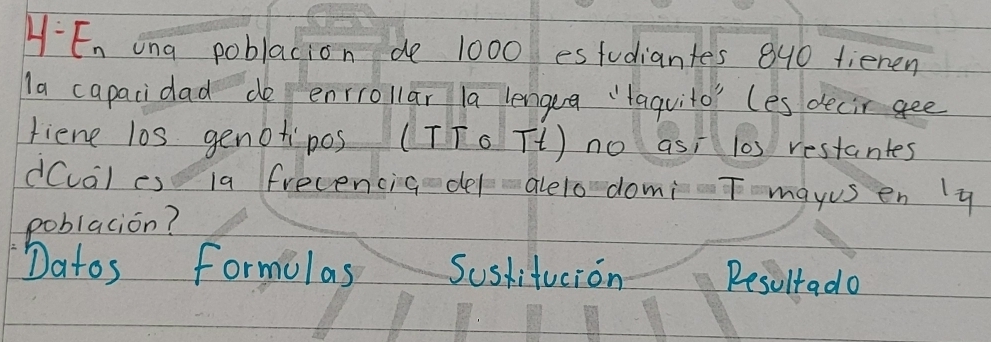 4-En una poblacion de 1000 estudiantes 840 tienen
la capacidad de enrrollar la lengua "taquito" (es decir qee
tiene los genotipos (TT o Tt) no así los restantes
¿Cuál es la frecencia del alelo domi T mayus en la
población?
Datos Formulas Sustitución Resultado